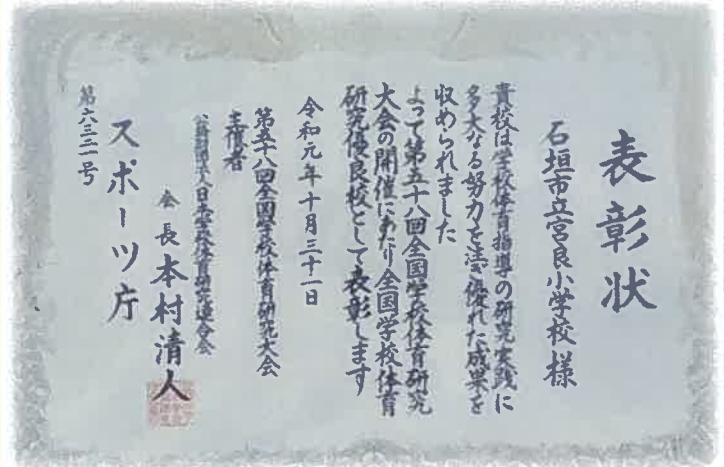 表彰状
石垣市立宮良小学校様
貴校は学校体育指導の研究実践に
多大なる努力を注ぎ優れた成果を
収められました
よって第五十八回全国学校体育研究
大会の開催にあたり全国学校体育
研究優良校として表彰します
令和元年十月三十一日
第五十八回全国学校体育研究大会
主催者
公益財団法人日本学校体育研究連合会
会長本村清人
スポーツ庁
第六三二一号